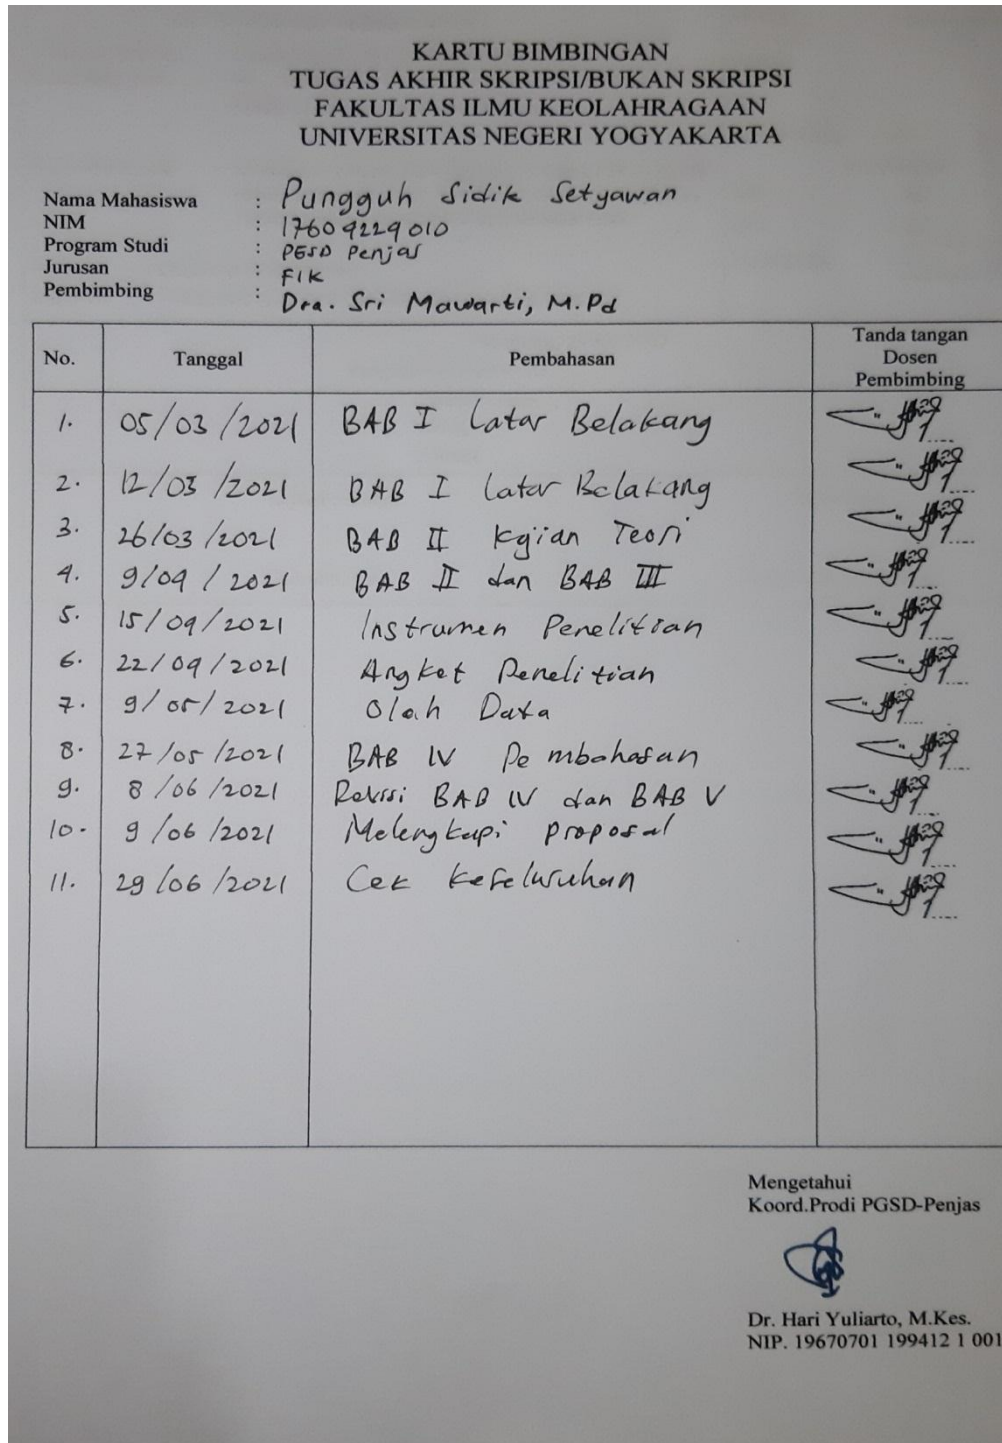 KARTU BIMBINGAN
TUGAS AKHIR SKRIPSI/BUKAN SKRIPSI
FAKULTAS ILMU KEOLAHRAGAAN
UNIVERSITAS NEGERI YOGYAKARTA
Nama Mahasiswa : Pungguh Sidik Setyawan
NIM : 17604224010
Program Studi : PGSD Penjas
Jurusan : FIK
Pembimbing : Dra. Sri Mawarti, M.Pd
No. Tanggal Pembahasan Tanda tangan Dosen Pembimbing
1. 05/03/2021 BAB I Latar Belakang
2. 12/03/2021 BAB I Latar Belakang
3. 26/03/2021 BAB II Kajian Teori
4. 9/04/2021 BAB II dan BAB III
5. 15/04/2021 Instrumen Penelitian
6. 22/04/2021 Angket Penelitian
7. 9/05/2021 Olah Data
8. 27/05/2021 BAB IV Pembahasan
9. 8/06/2021 Revisi BAB IV dan BAB V
10. 9/06/2021 Melengkapi proposal
11. 29/06/2021 Cek keseluruhan
Mengetahui
Koord.Prodi PGSD-Penjas
Dr. Hari Yuliarto, M.Kes.
NIP. 19670701 199412 1 001